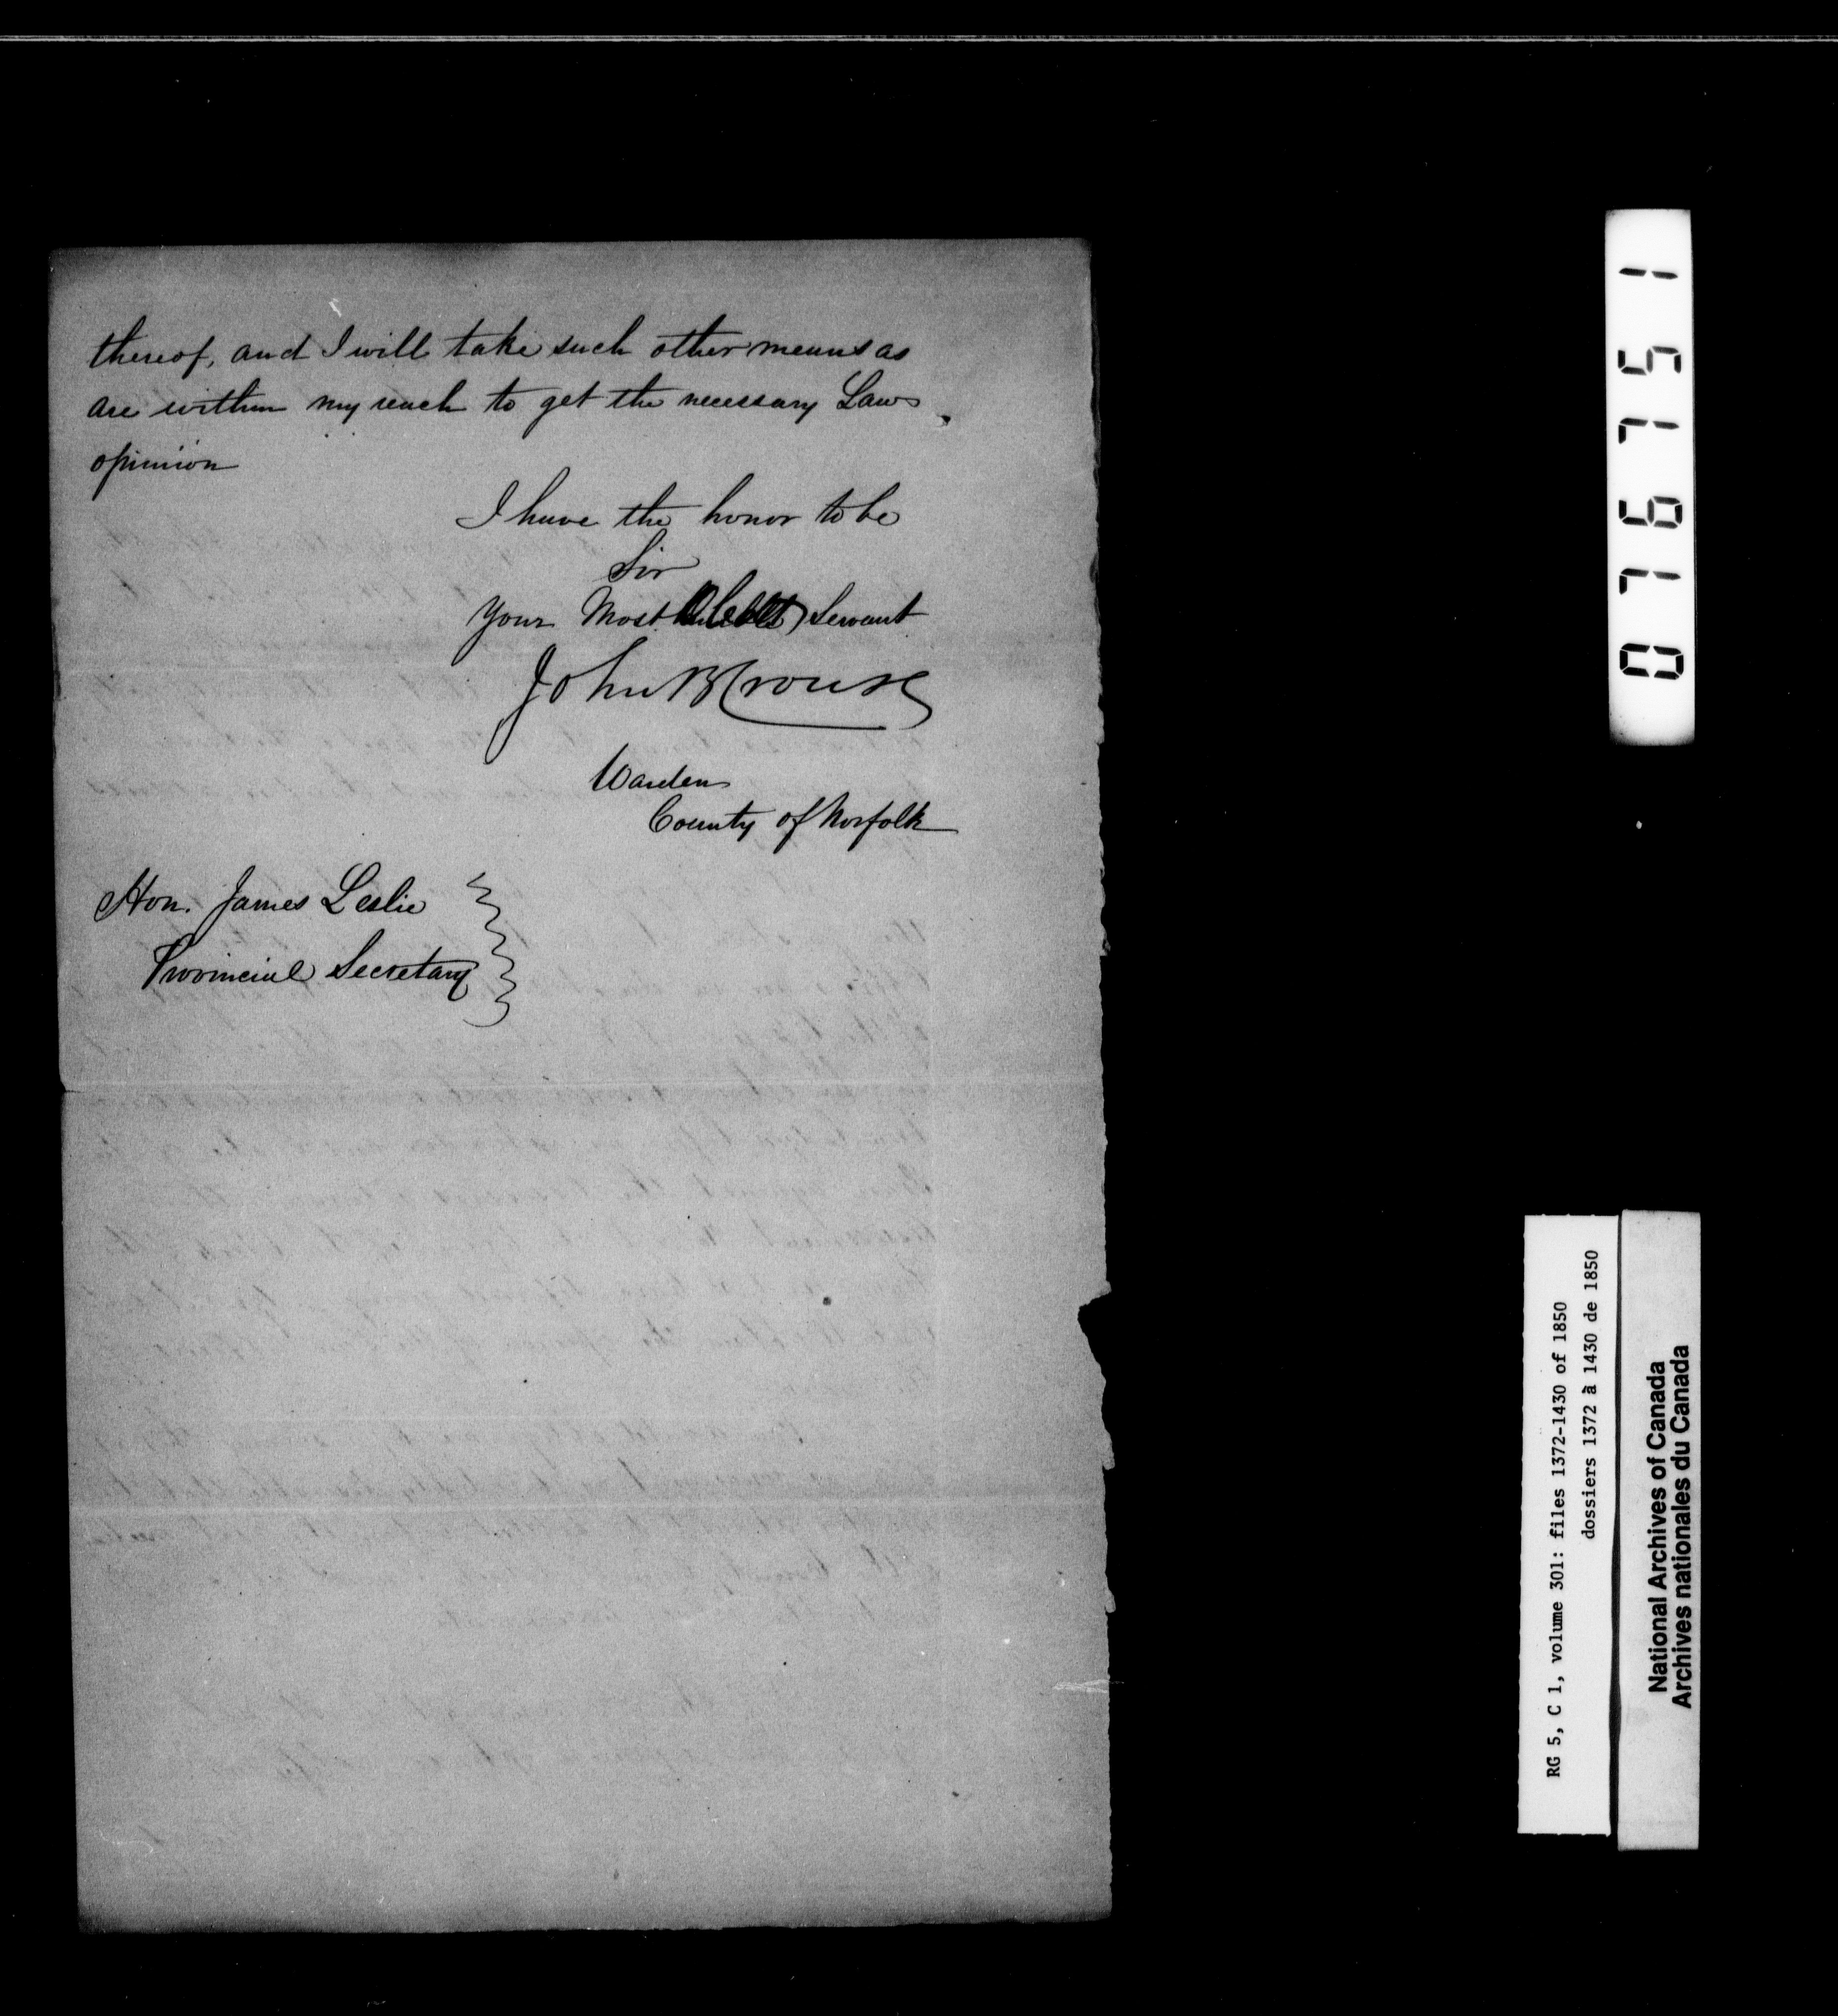 thereof, and I will take such other means as
are within my reach to get the necessary Law
opinion
I have the honor to be
Sir
Your Most Obedt Servant
John B Crouse
Warden
County of Norfolk
Hon. James Leslie
Provincial Secretary
076751
RG 5, C 1, volume 301: files 1372-1430 of 1850
dossiers 1372 à 1430 de 1850
National Archives of Canada
Archives nationales du Canada